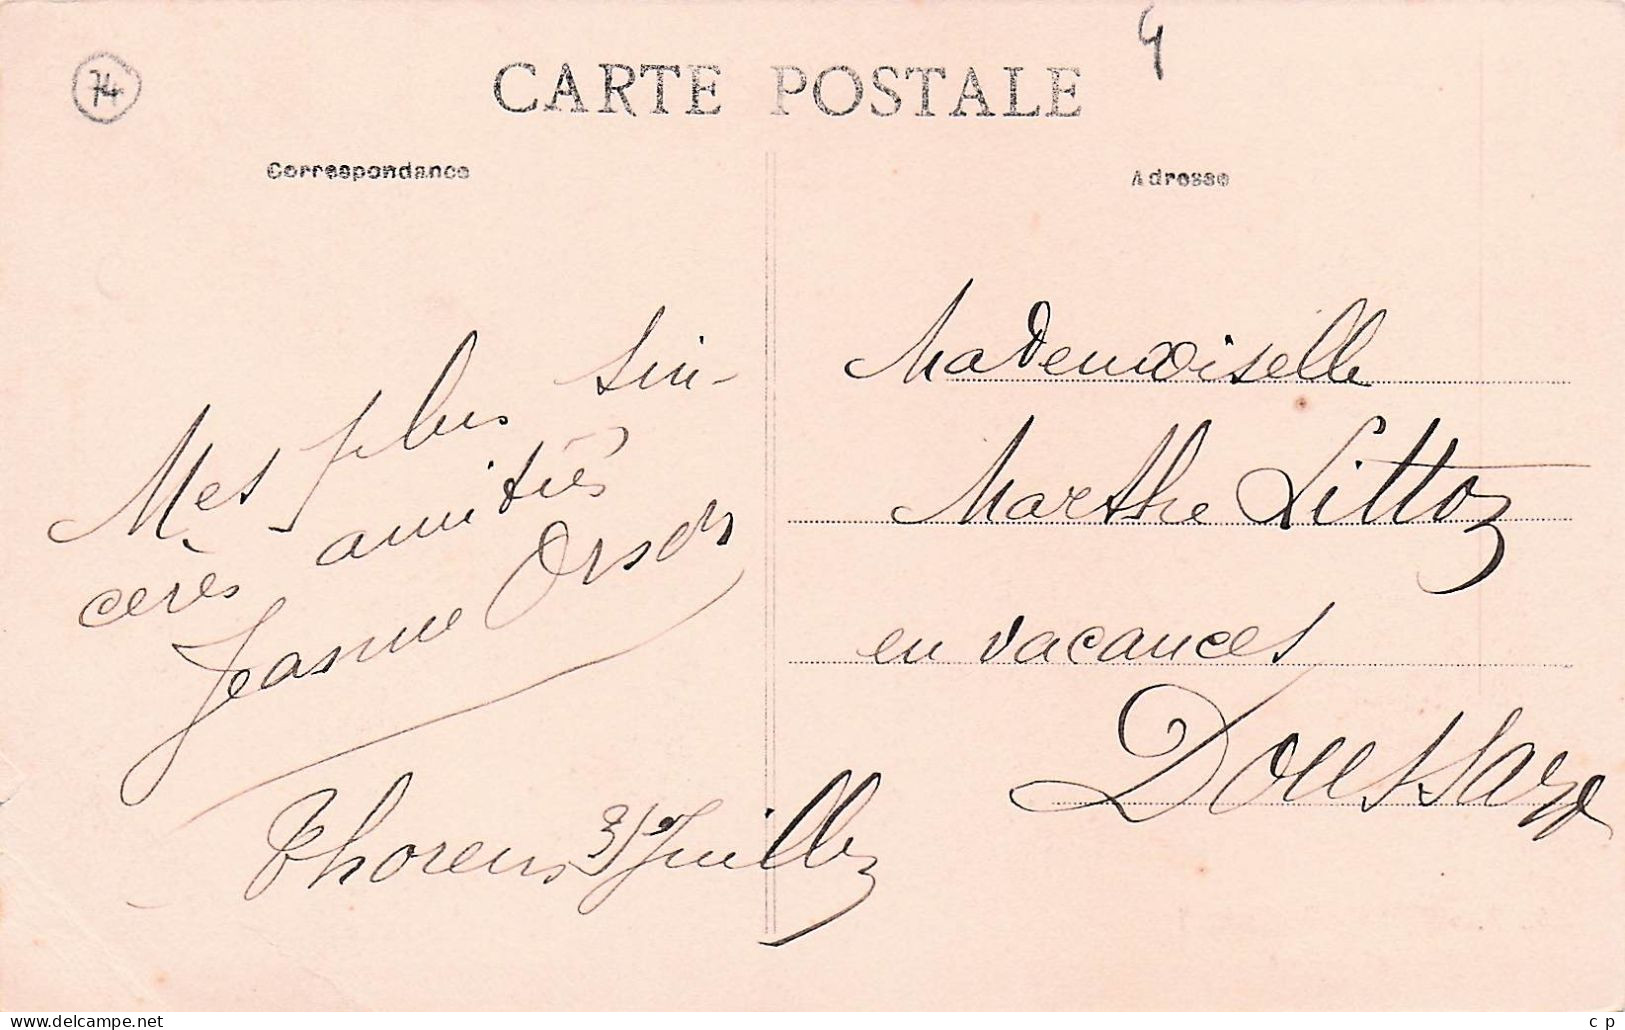 74
CARTE POSTALE
Correspondance
Adresse
Mes plus sin-
cères amitiés
Jeanne
Thorens 31 Juillet
Mademoiselle
Marthe Littoz
en vacances
Doussard
www.delcampe.net
c_p